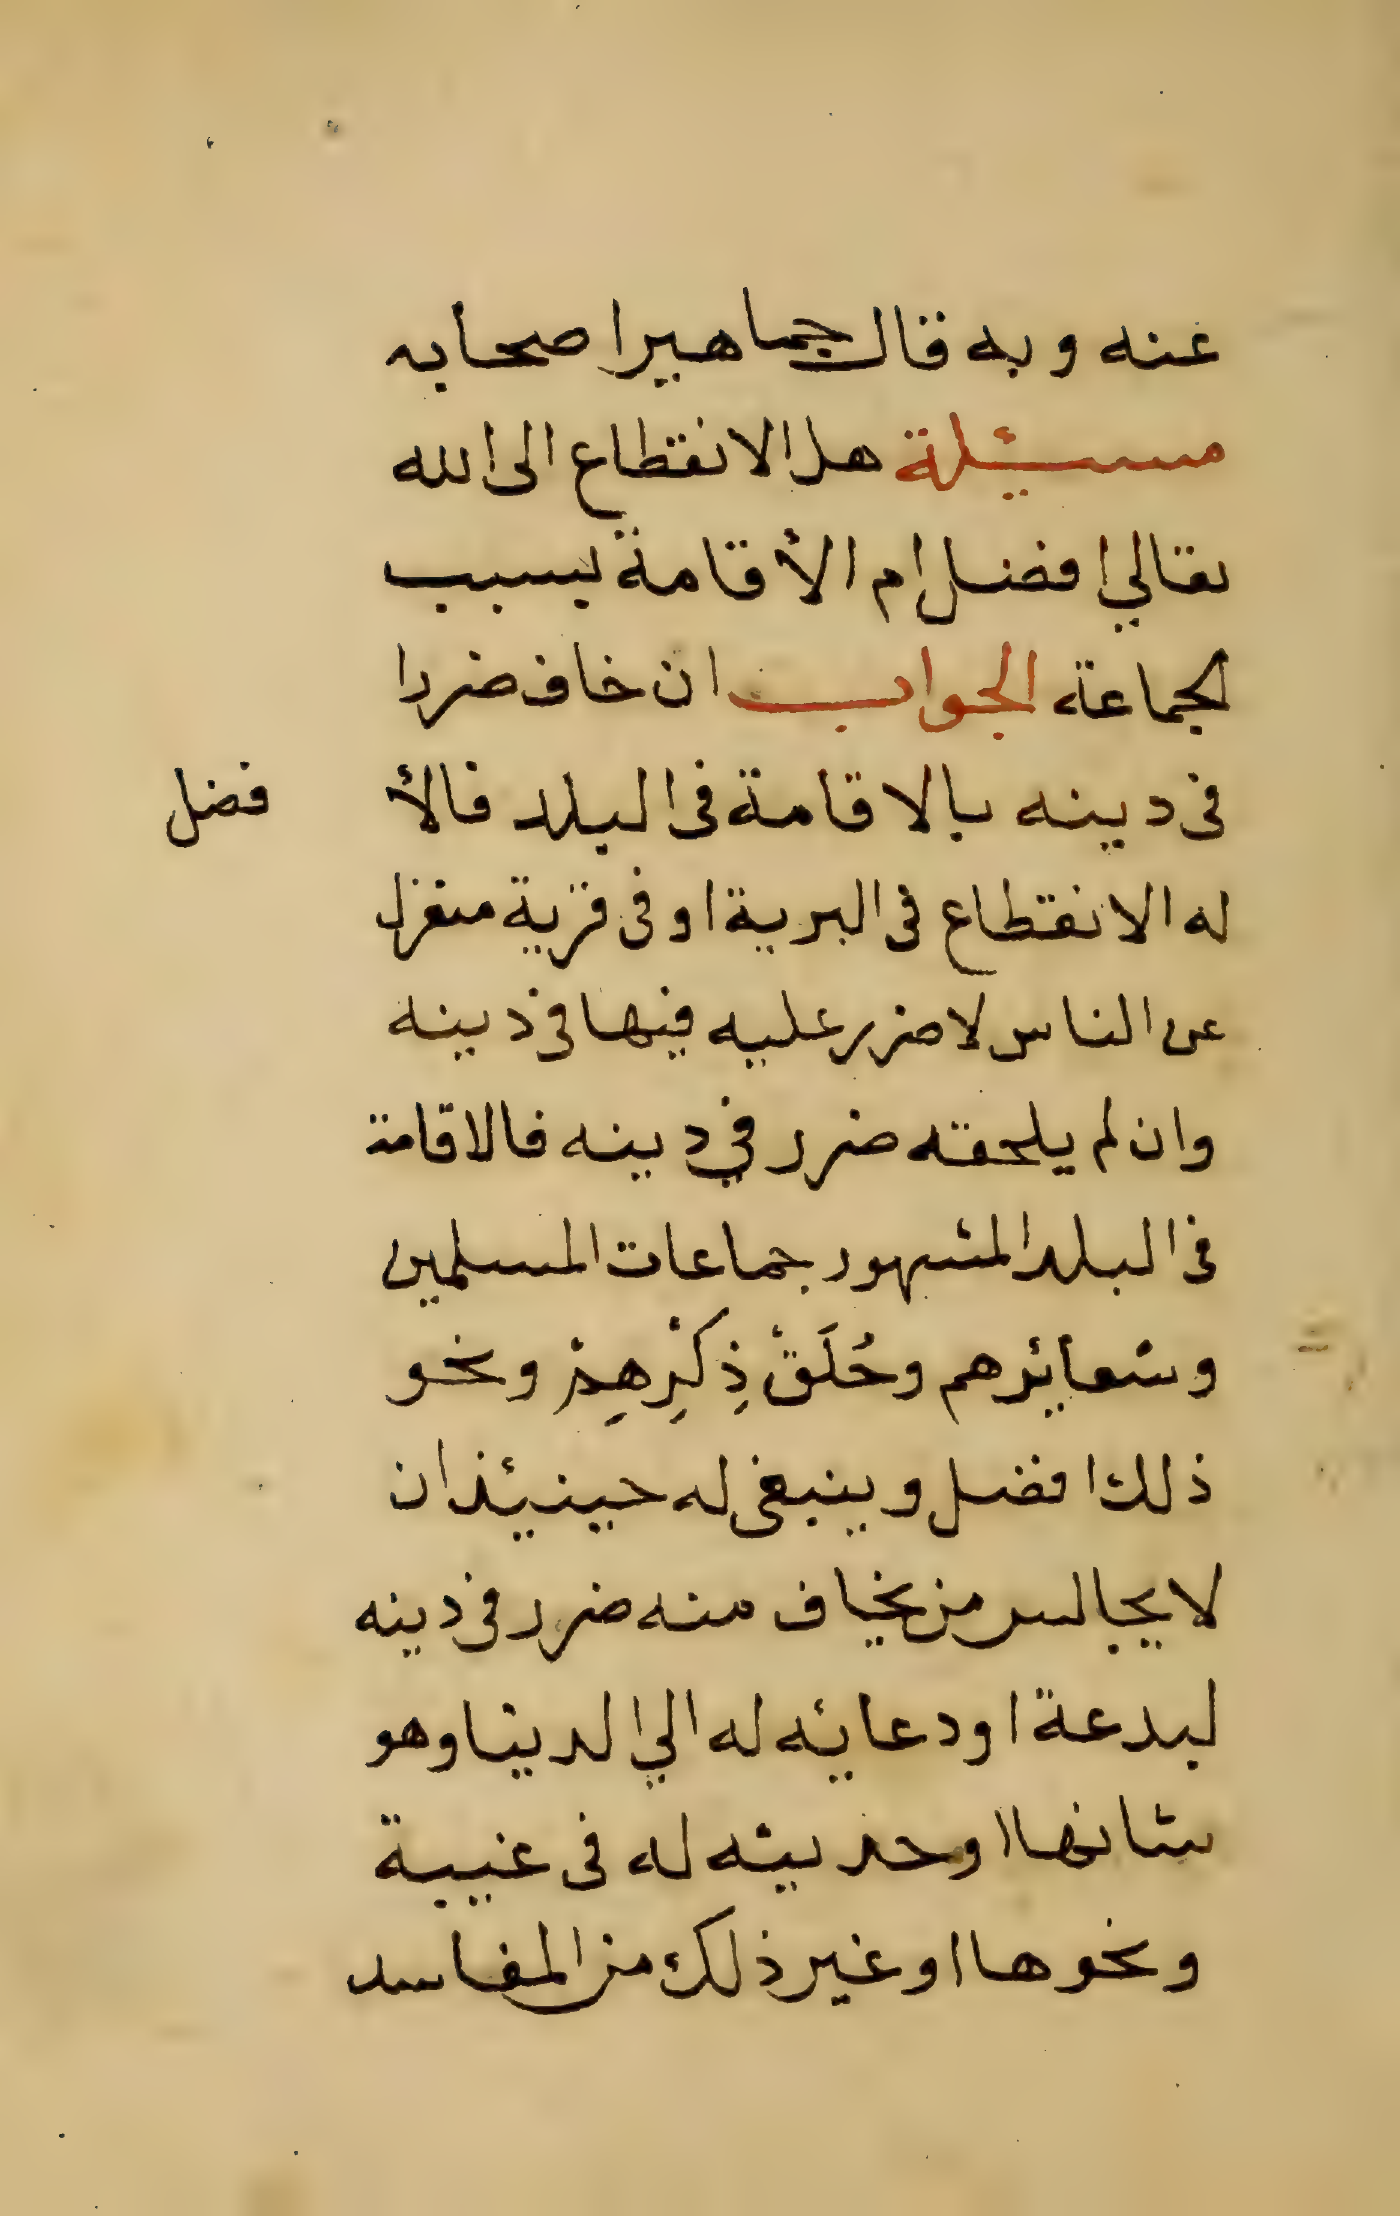 عنه وبه قال جماهير اصحابه
مسئلة هل الانقطاع الى الله
تعالي افضل ام الأقامة بسبب
الجماعة الجواب ان خاف ضررا
فى دينه بالاقامة فى البلد فالأ فضل
له الانقطاع فى البرية او فى قرية منعزل
عن الناس لا ضرر عليه فيها فى دينه
وان لم يلحقه ضرر في دينه فالاقامة
فى البلد المشهور جماعات المسلمين
وشعائرهم وحُلَقْ ذِكْرِهِمْ ونحو
ذلك افضل وينبغى له حينئذ ان
لا يجالس من يخاف منه ضرر فى دينه
لبدعة او دعائه له الي الدنيا وهو
شانها او حديثه له فى غيبة
ونحوها او غير ذلك من المفاسد